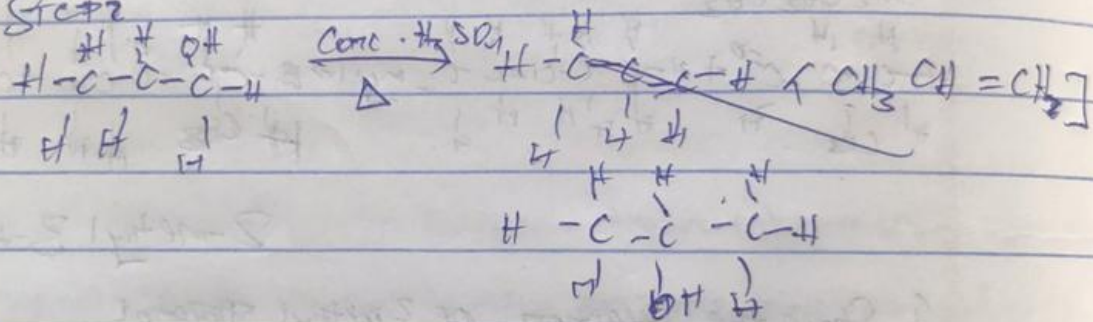 Step 2
H H OH
H-C-C-C-H Conc. H2SO4 H-C=C-C-H [CH3CH=CH2]
Δ
H H H H H H
H H H
H-C-C-C-H
H OH H